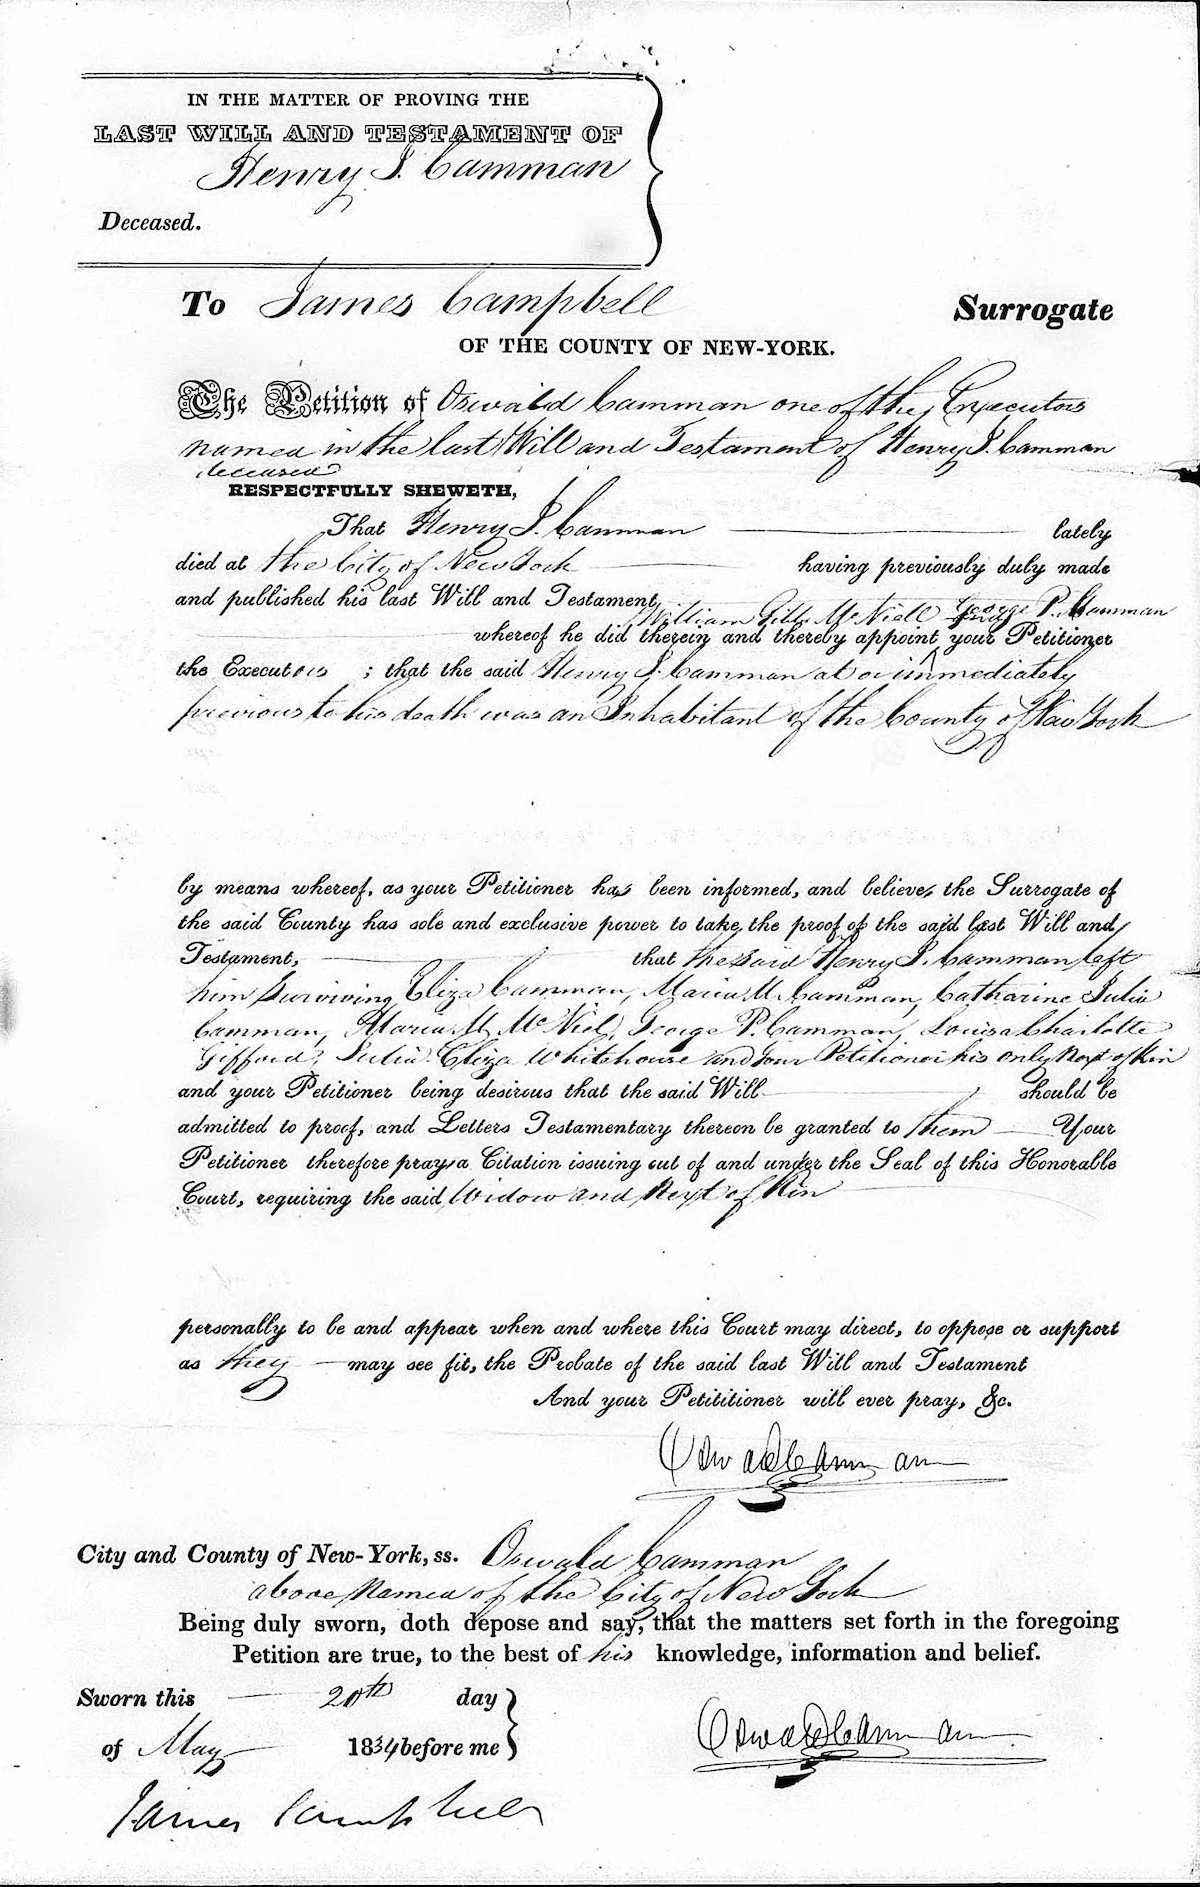 IN THE MATTER OF PROVING THE
LAST WILL AND TESTAMENT OF
Henry I. Camman
Deceased.
To James Campbell Surrogate
OF THE COUNTY OF NEW-YORK.
The Petition of Oswald Camman one of the Executors
named in the last Will and Testament of Henry I. Camman
deceased
RESPECTFULLY SHEWETH,
That Henry I. Camman lately
died at the City of New York having previously duly made
and published his last Will and Testament,
William Gibbs McNiell and George P. Camman
whereof he did therein and thereby appoint your Petitioner
the Executors ; that the said Henry I. Camman at or immediately
previous to his death was an Inhabitant of the County of New York
by means whereof, as your Petitioner has been informed, and believes the Surrogate of
the said County has sole and exclusive power to take the proof of the said last Will and
Testament, that the said Henry I. Camman left
him surviving Eliza Camman, Maria M. Camman, Catharine Julia
Camman, Maria M. McNiel, George P. Camman, Louisa Charlotte
Gifford, Julia Eliza Whitehouse and your Petitioner his only Next of Kin
and your Petitioner being desirous that the said Will should be
admitted to proof, and Letters Testamentary thereon be granted to them Your
Petitioner therefore prays a Citation issuing out of and under the Seal of this Honorable
Court, requiring the said Widow and Next of Kin
personally to be and appear when and where this Court may direct, to oppose or support
as they may see fit, the Probate of the said last Will and Testament
And your Petititioner will ever pray, &c.
Oswald Camman
City and County of New-York, ss. Oswald Camman
above Named of the City of New York
Being duly sworn, doth depose and say, that the matters set forth in the foregoing
Petition are true, to the best of his knowledge, information and belief.
Sworn this 20th day
of May 1834 before me
Oswald Camman
James Campbell